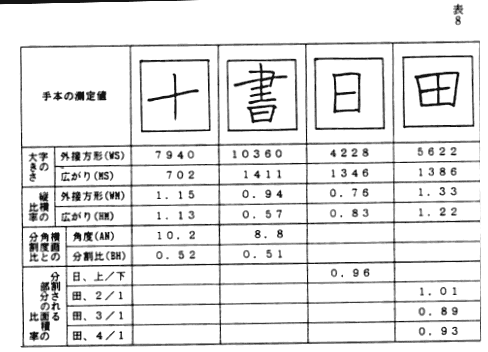 表8
手本の測定値 十 書 日 田
字の大きさ 外接方形(WS) 7940 10360 4228 5622
広がり(MS) 702 1411 1346 1386
縦横比率の 外接方形(WH) 1.15 0.94 0.76 1.33
広がり(HM) 1.13 0.57 0.83 1.22
横画角度との分割比 角度(AN) 10.2 8.8
分割比(BH) 0.52 0.51
分割される部分の面積比率の 日、上/下 0.96
田、2/1 1.01
田、3/1 0.89
田、4/1 0.93